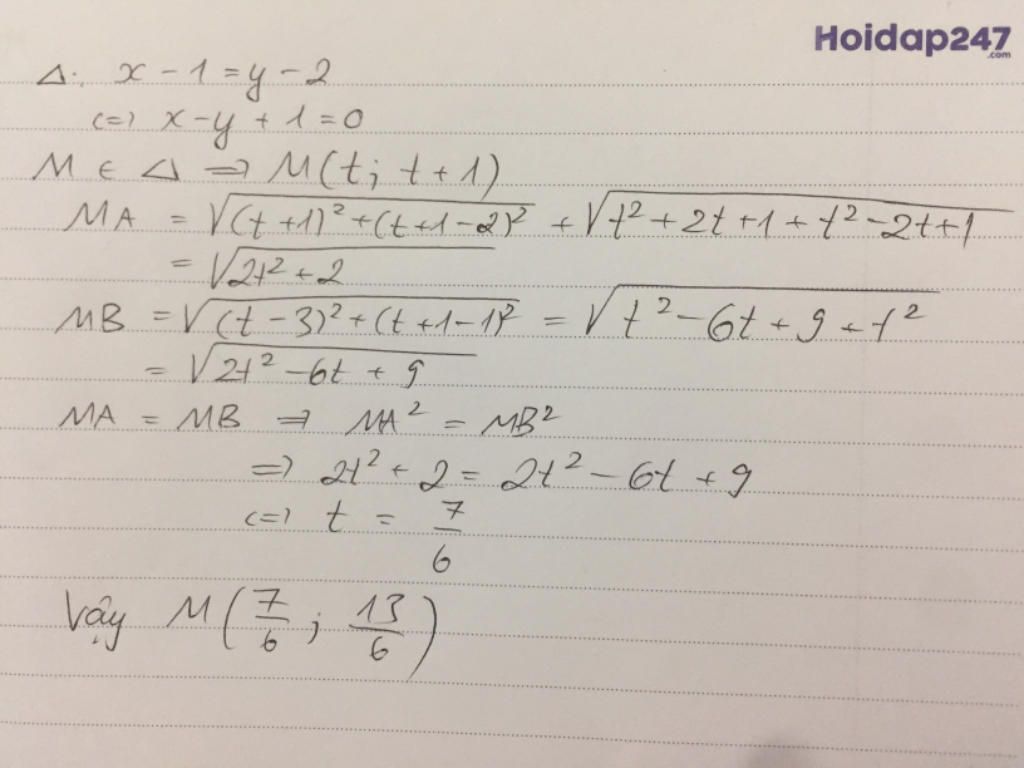 Hoidap247
.com
Δ: x - 1 = y - 2
(=) x - y + 1 = 0
M ∈ Δ => M(t; t + 1)
MA = √((t + 1)² + (t + 1 - 2)²) + √(t² + 2t + 1 + t² - 2t + 1)
= √(2t² + 2)
MB = √((t - 3)² + (t + 1 - 1)²) = √(t² - 6t + 9 + t²)
= √(2t² - 6t + 9)
MA = MB => MA² = MB²
=> 2t² + 2 = 2t² - 6t + 9
(=) t = 7/6
Vậy M(7/6; 13/6)